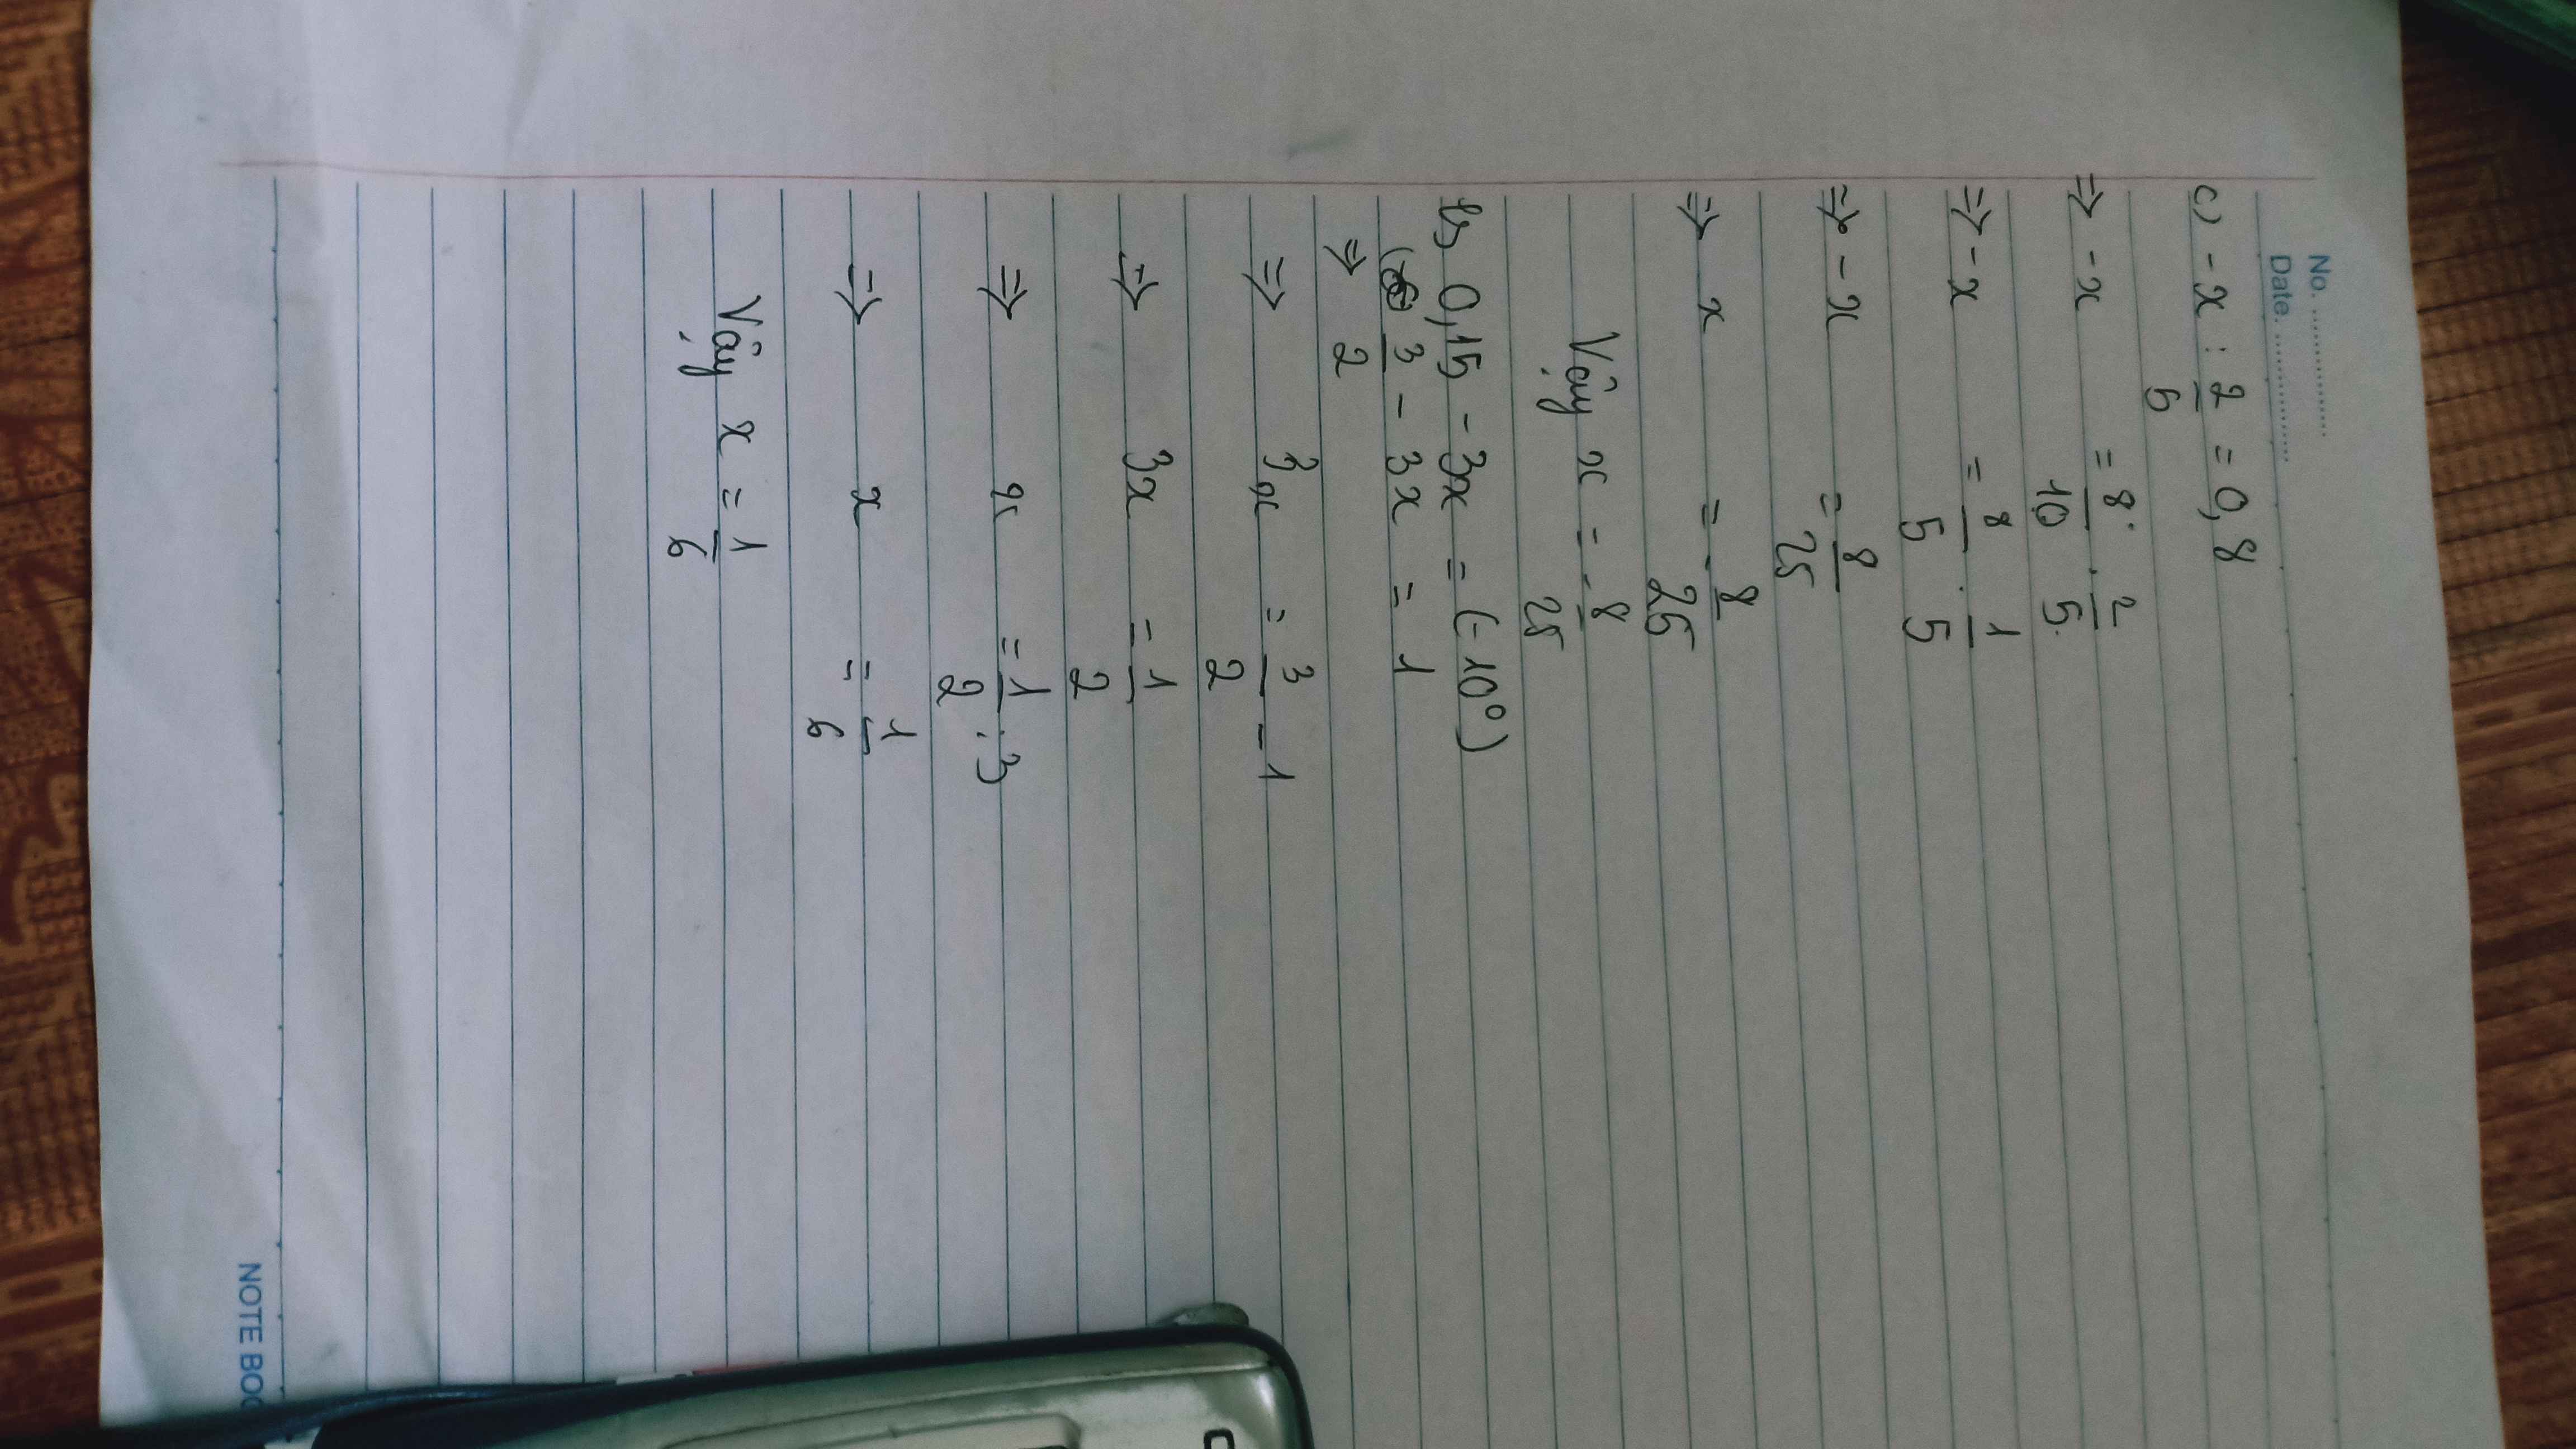 No. ..................
Date. ..................
c) -x : 2/5 = 0,8
=> -x = 8/10 . 2/5
=> -x = 8/5 . 1/5
=> -x = 8/25
=> x = -8/25
Vậy x = -8/25
b, 0,15 - 3x = (-10⁰)
=> 3/2 - 3x = 1
=> 3x = 3/2 - 1
=> 3x = 1/2
=> x = 1/2 : 3
=> x = 1/6
Vậy x = 1/6
NOTE BOO